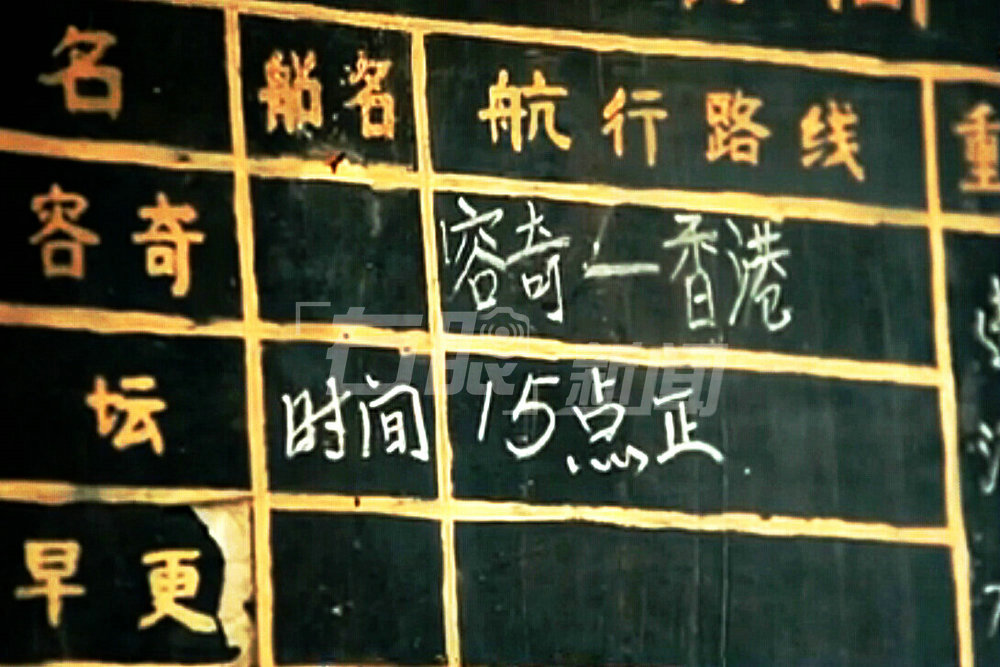 名 船名 航行路线 重
容奇 容奇—香港
坛 时间 15点正
早更
有眼新闻